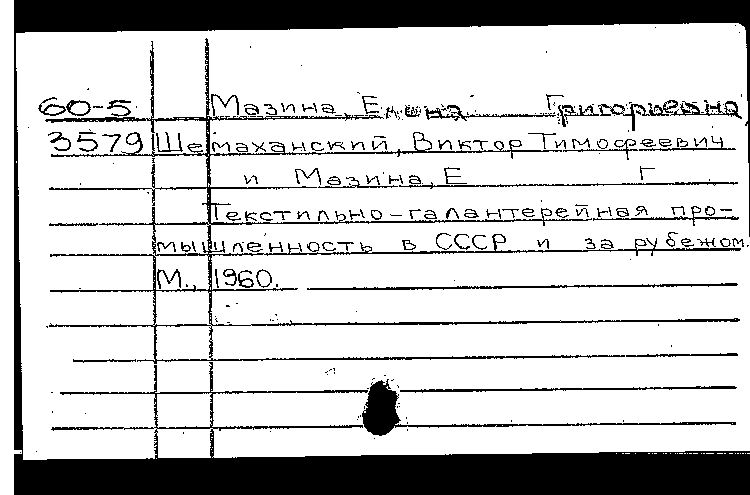 60-5 Мазина, Елена Григорьевна
3579 Шемаханский, Виктор Тимофеевич
и Мазина, Е Г
Текстильно-галантерейная про-
мышленность в СССР и за рубежом.
М., 1960.